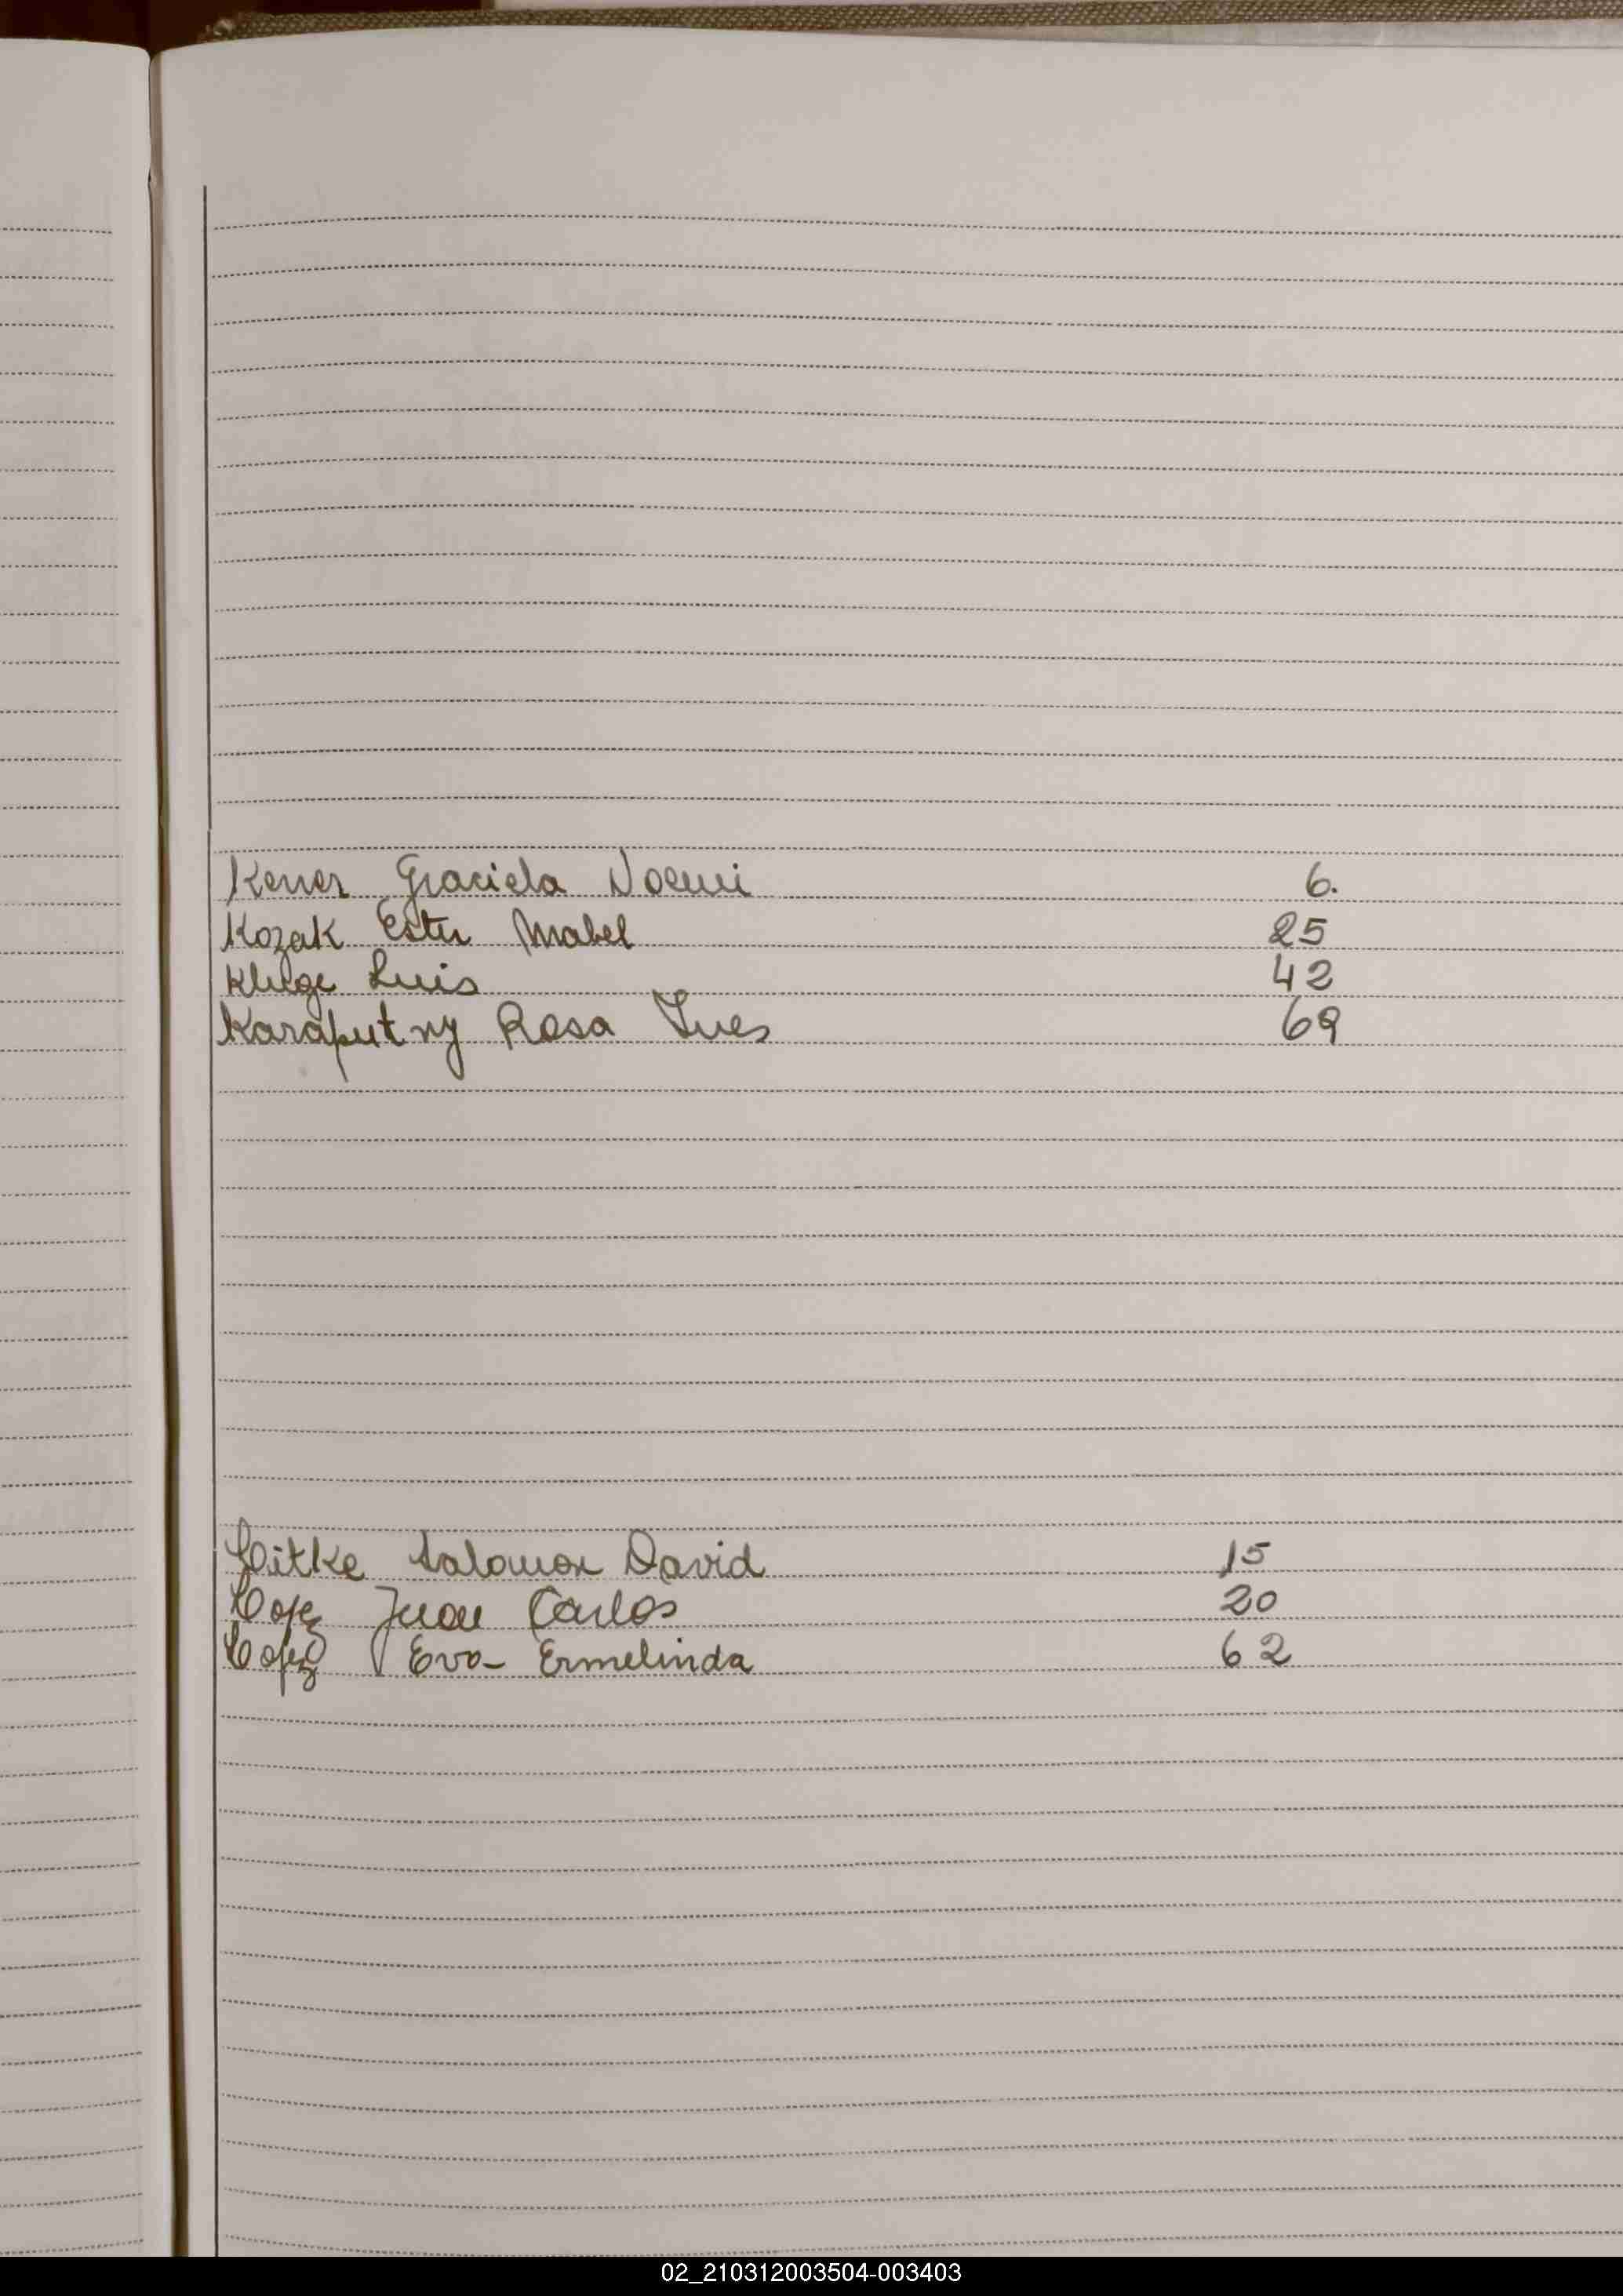 Kener Graciela Noemi 6.
Kozak Ester Mabel 25
Kluge Luis 42
Karaputny Rosa Ines 69
Litke Salomon David 15
Lopez Juan Carlos 20
Lopez Eva Ermelinda 62
02_210312003504-003403